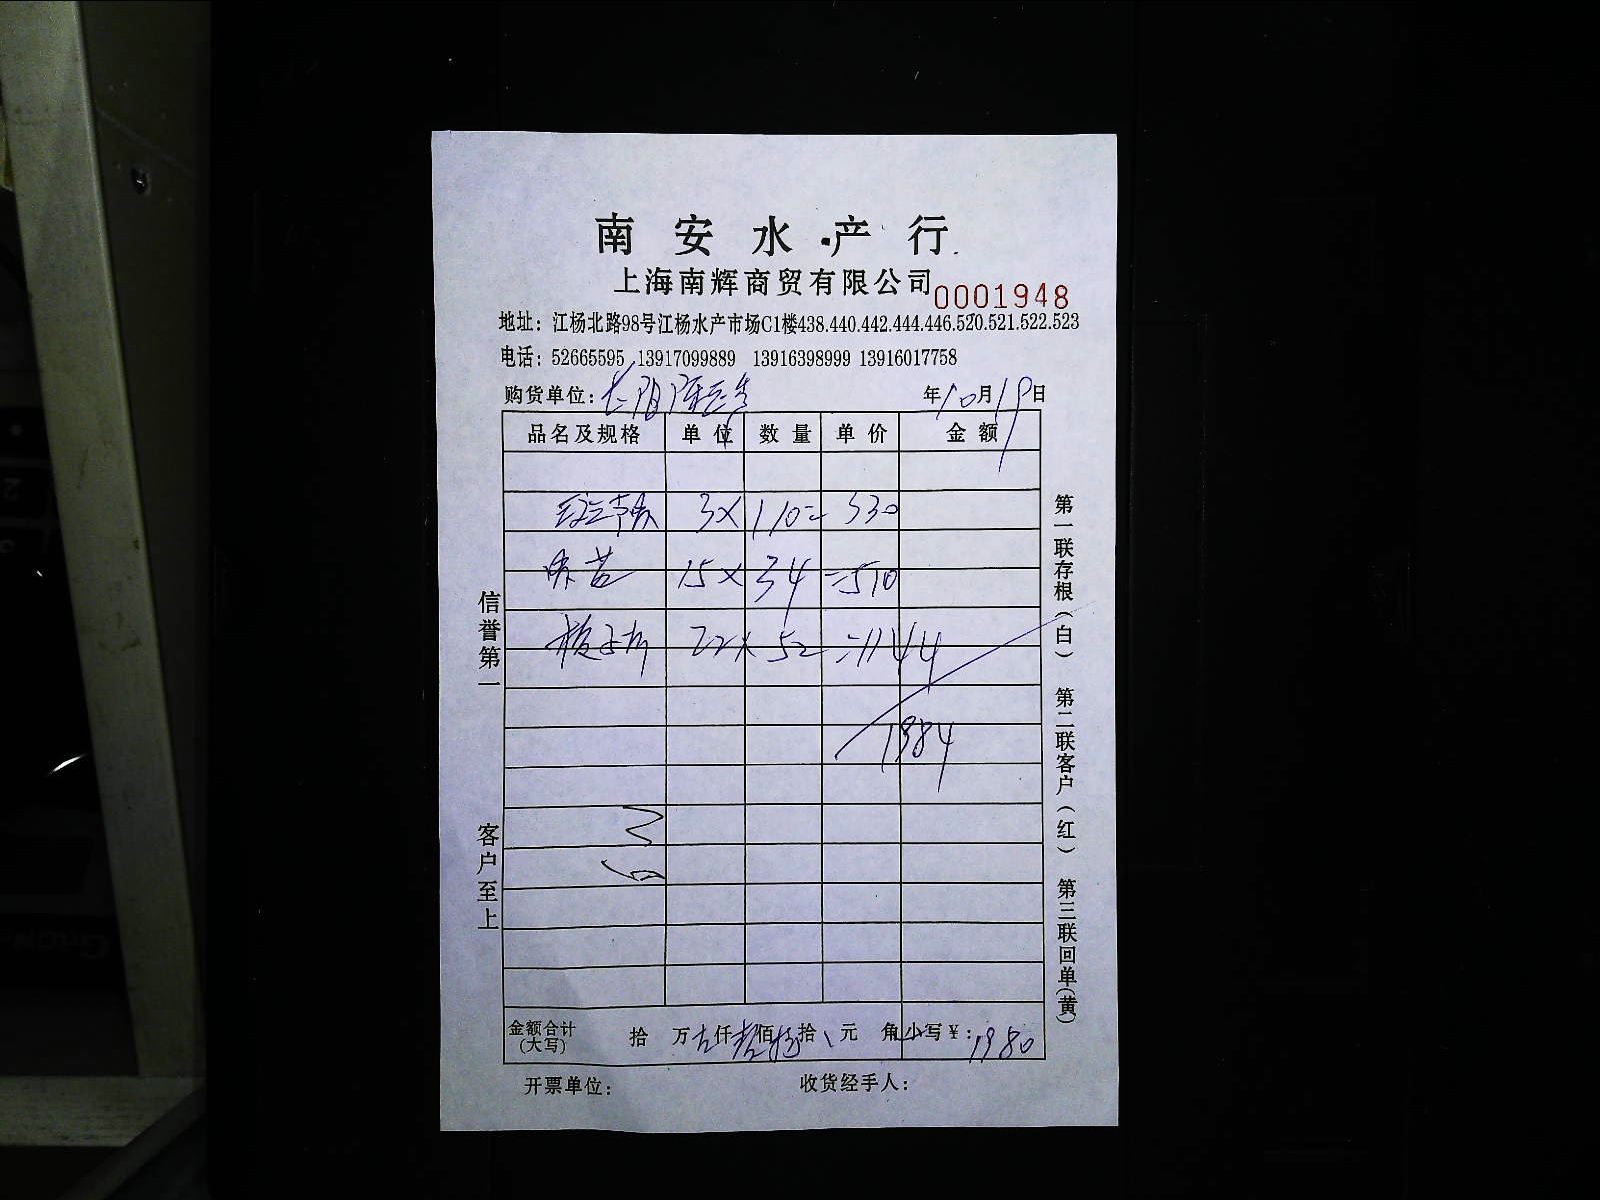 南安水产行
上海南辉商贸有限公司 0001948
地址：江杨北路98号江杨水产市场C1楼438.440.442.444.446.520.521.522.523
电话：52665595 13917099889 13916398999 13916017758
购货单位： 年10月19日
品名及规格 单位 数量 单价 金额
3× 110= 330
15× 34 =510
22× 52 =1144
1984
信誉第一
客户至上
第一联存根（白） 第二联客户（红） 第三联回单（黄）
金额合计（大写） 拾 万 仟 佰 拾 元 角 小写￥：1980
开票单位： 收货经手人：